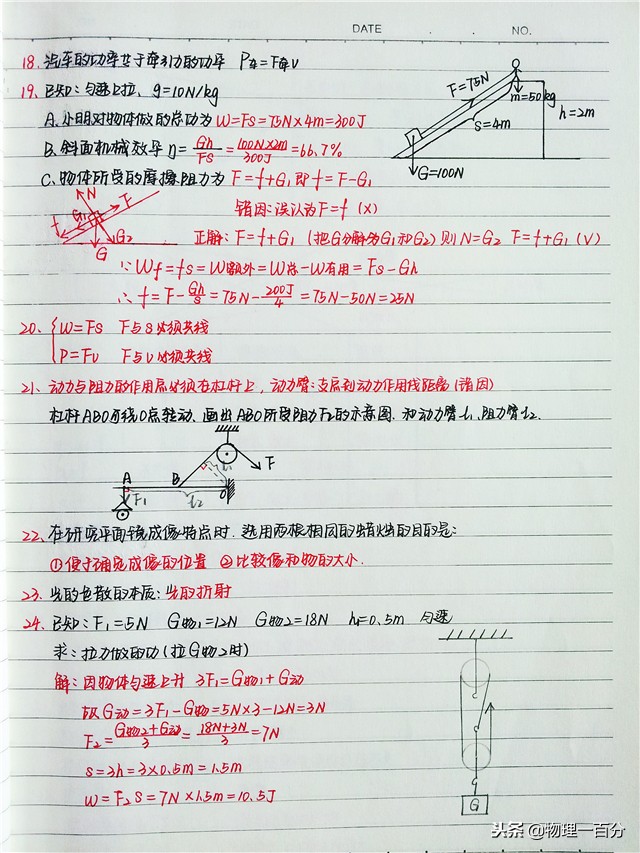 DATE . . NO.
18、汽车的功率等于牵引力的功率 P车=F牵v
19、已知：匀速上拉、g=10N/kg
F=75N
m=50kg
h=2m
s=4m
G=100N
A.小明对物体做的总功为W=FS=75N×4m=300J
B.斜面机械效率η=Gh/FS=100N×2m/300J=66.7%
C.物体所受的摩擦阻力为F=f+G1即f=F-G1
N
F
G1
f
G2
G
错因：误认为F=f (X)
正解：F=f+G1 (把G分解为G1和G2) 则N=G2 F=f+G1 (V)
∵Wf=fs=W额外=W总-W有用=Fs-Gh
∴f=F-Gh/s=75N-200J/4=75N-50N=25N
20、{W=Fs F与s必须共线
P=Fv F与v必须共线
21、动力与阻力的作用点必须在杠杆上，动力臂：支点到动力作用线距离(错因)
杠杆ABO可绕O点转动、画出ABO所受阻力F2的示意图、和动力臂l1、阻力臂l2.
A
B
O
F
F1
l1
l2
22、在研究平面镜成像特点时、选用两根相同的蜡烛的目的是：
①便于确定成像的位置 ②比较像和物的大小.
23、光的色散的本质：光的折射
24、已知：F1=5N G物1=12N G物2=18N h=0.5m 匀速
求：拉力做的功(拉G物2时)
解：因物体匀速上升 3F1=G物1+G动
故G动=3F1-G物=5N×3-12N=3N
F2=G物2+G动/3=18N+3N/3=7N
s=3h=3×0.5m=1.5m
W=F2S=7N×1.5m=10.5J
G
头条 @物理一百分